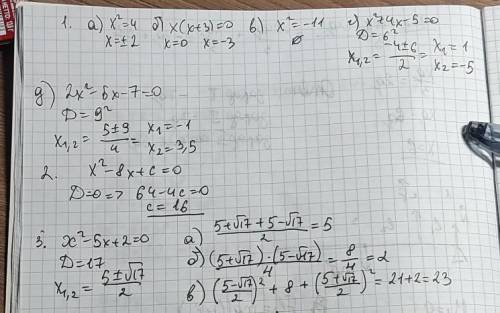 1. а) x²=4 б) x(x+3)=0 в) x²=-11 г) x²+4x-5=0
x=±2 x=0 x=-3 ∅ D=6²
x₁,₂ = (-4±6)/2 = x₁=1 x₂=-5
д) 2x²-5x-7=0
D=9²
x₁,₂ = (5±9)/4 = x₁=-1 x₂=3,5
2. x²-8x+c=0
D=0=> 64-4c=0
c=16
3. x²-5x+2=0 а) (5+√17+5-√17)/2 =5
D=17 б) (5+√17)·(5-√17)/4 = 8/4 =2
x₁,₂ = (5±√17)/2 в) ((5-√17)/2)² + 8 + ((5+√17)/2)² = 21+2=23